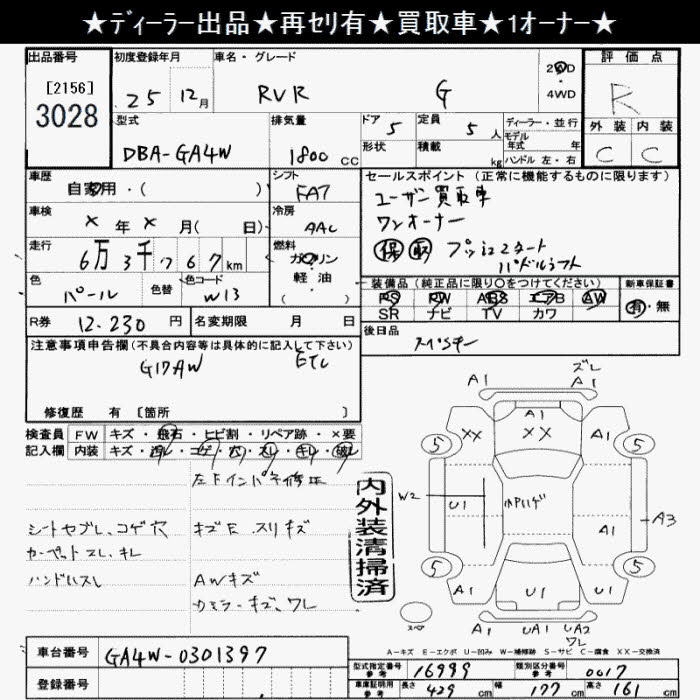 ★ディーラー出品★再セリ有★買取車★1オーナー★
出品番号 初度登録年月 車名・グレード 評価点
[2156]
3028
25 12月 RVR G 2WD
・
4WD
R
型式 排気量 ドア 定員 ディーラー・並行 外装 内装
DBA-GA4W 1800 CC 5 5 人 モデル
年式 年
形状 積載 kg ハンドル 左・右 C C
車歴 シフト セールスポイント (正常に機能するものに限ります)
自家用・( ) FA7 ユーザー買取車
車検 冷房 ワンオーナー
× 年 × 月( 日) AAC
走行 燃料 保 取 プッシュスタート
6万3千767km ガソリン
・
軽油
( )
パドルシフト
色 色替 色コード
パール W13
装備品 (純正品に限り○をつけてください) 新車保証書
PS PW ABS エアB AW 有・無
SR ナビ TV カワ
R券 12,230 円 名変期限 月 日 後日品
注意事項申告欄 (不具合内容等は具体的に記入して下さい) スペアキー
G17AW ETC
修復歴 有 [箇所 ]
検査員 FW キズ・飛石・ヒビ割・リペア跡・×要
記入欄 内装 キズ・汚レ・コゲ・穴・スレ・キレ・破レ
左Fインパネ修正
シートセブレ、コゲ穴 キズE スリキズ
カーペットスレ、キレ
ハンドルスレ AWキズ
カメラーキズ、ワレ
内外装清掃済
ズレ
A1 A1
A1
XX XX A1
5 5
W2 U1 A1 A3
5 5
A1 U1 U1
A1 UA1 UA2
ワレ
A-キズ E-エクボ U-凹み W-補修跡 S-サビ C-腐食 XX-交換済
車台番号 GA4W-0301397
登録番号
型式指定番号
参考 16999 類別区分番号
参考 0017
車庫証明用
参考 長さ 429 cm 幅 177 cm 高さ 161 cm